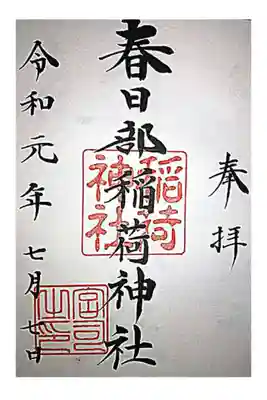 奉拝
春日部稲荷神社
稲荷
神社
令和元年七月日
宮司
之印